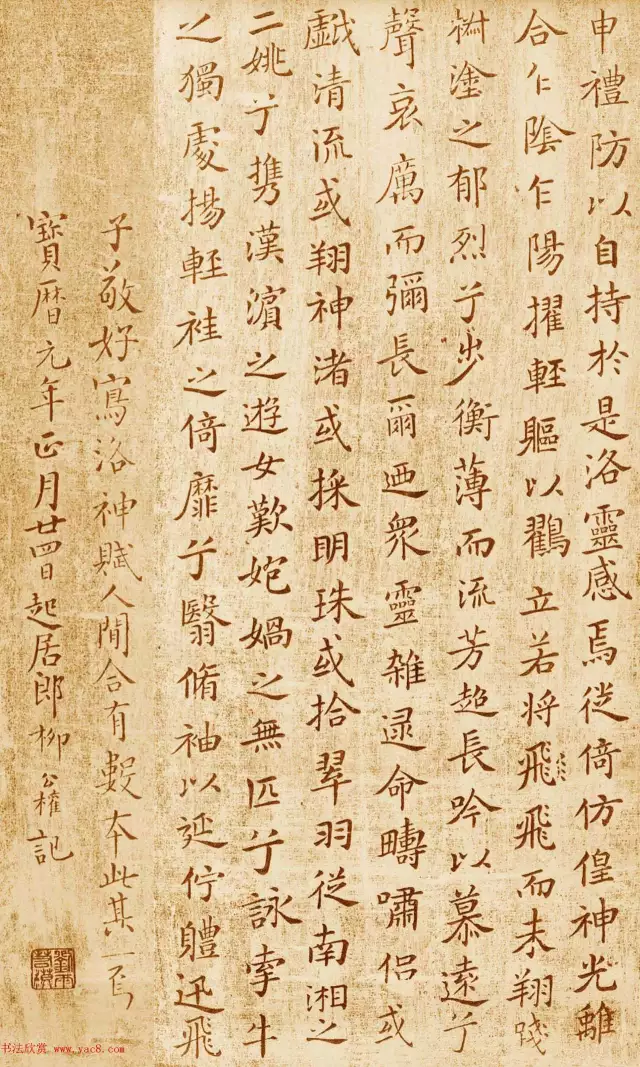 申禮防以自持於是洛靈感焉徙倚仿偟神光離
合乍陰乍陽擢輕軀以鶴立若將飛飛而未翔踐
椒塗之郁烈兮步衡薄而流芳超長吟以慕遠兮
聲哀厲而彌長爾迺眾靈雜遝命疇嘯侶或
戲清流或翔神渚或採明珠或拾翠羽從南湘之
二姚兮攜漢濱之遊女歎媧之無匹兮詠牽牛
之獨處揚輕袿之倚靡兮翳脩袖以延佇體迅飛
子敬好寫洛神賦人間合有數本此其一焉
寶曆元年正月廿四日起居郎柳公權記
书法欣赏 www.yac8.com